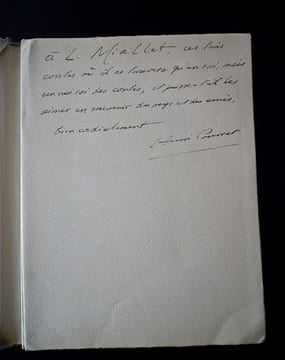 à L. Miallet, ces trois
contes où il ne trouvera qu'un roi, mais
un vrai roi des contes, et puisse-t-il les
aimer en souvenir du pays et des amis,
bien cordialement
Henri Pourrat